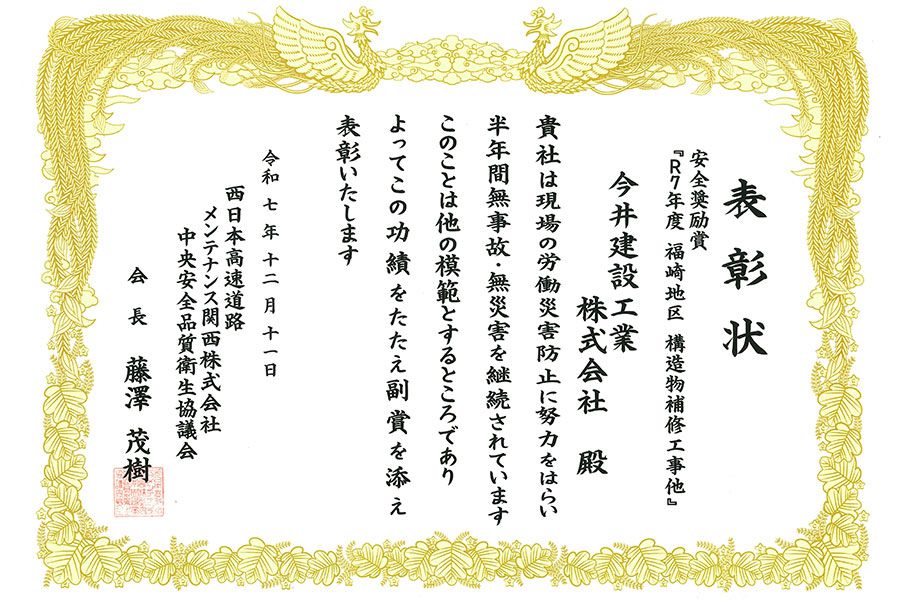 表彰状
安全奨励賞
『R7年度 福崎地区 構造物補修工事他』
今井建設工業
株式会社 殿
貴社は現場の労働災害防止に努力をはらい
半年間無事故・無災害を継続されています
このことは他の模範とするところであり
よってこの功績をたたえ副賞を添え
表彰いたします
令和七年十二月十一日
西日本高速道路
メンテナンス関西株式会社
中央安全品質衛生協議会
会長 藤澤 茂樹